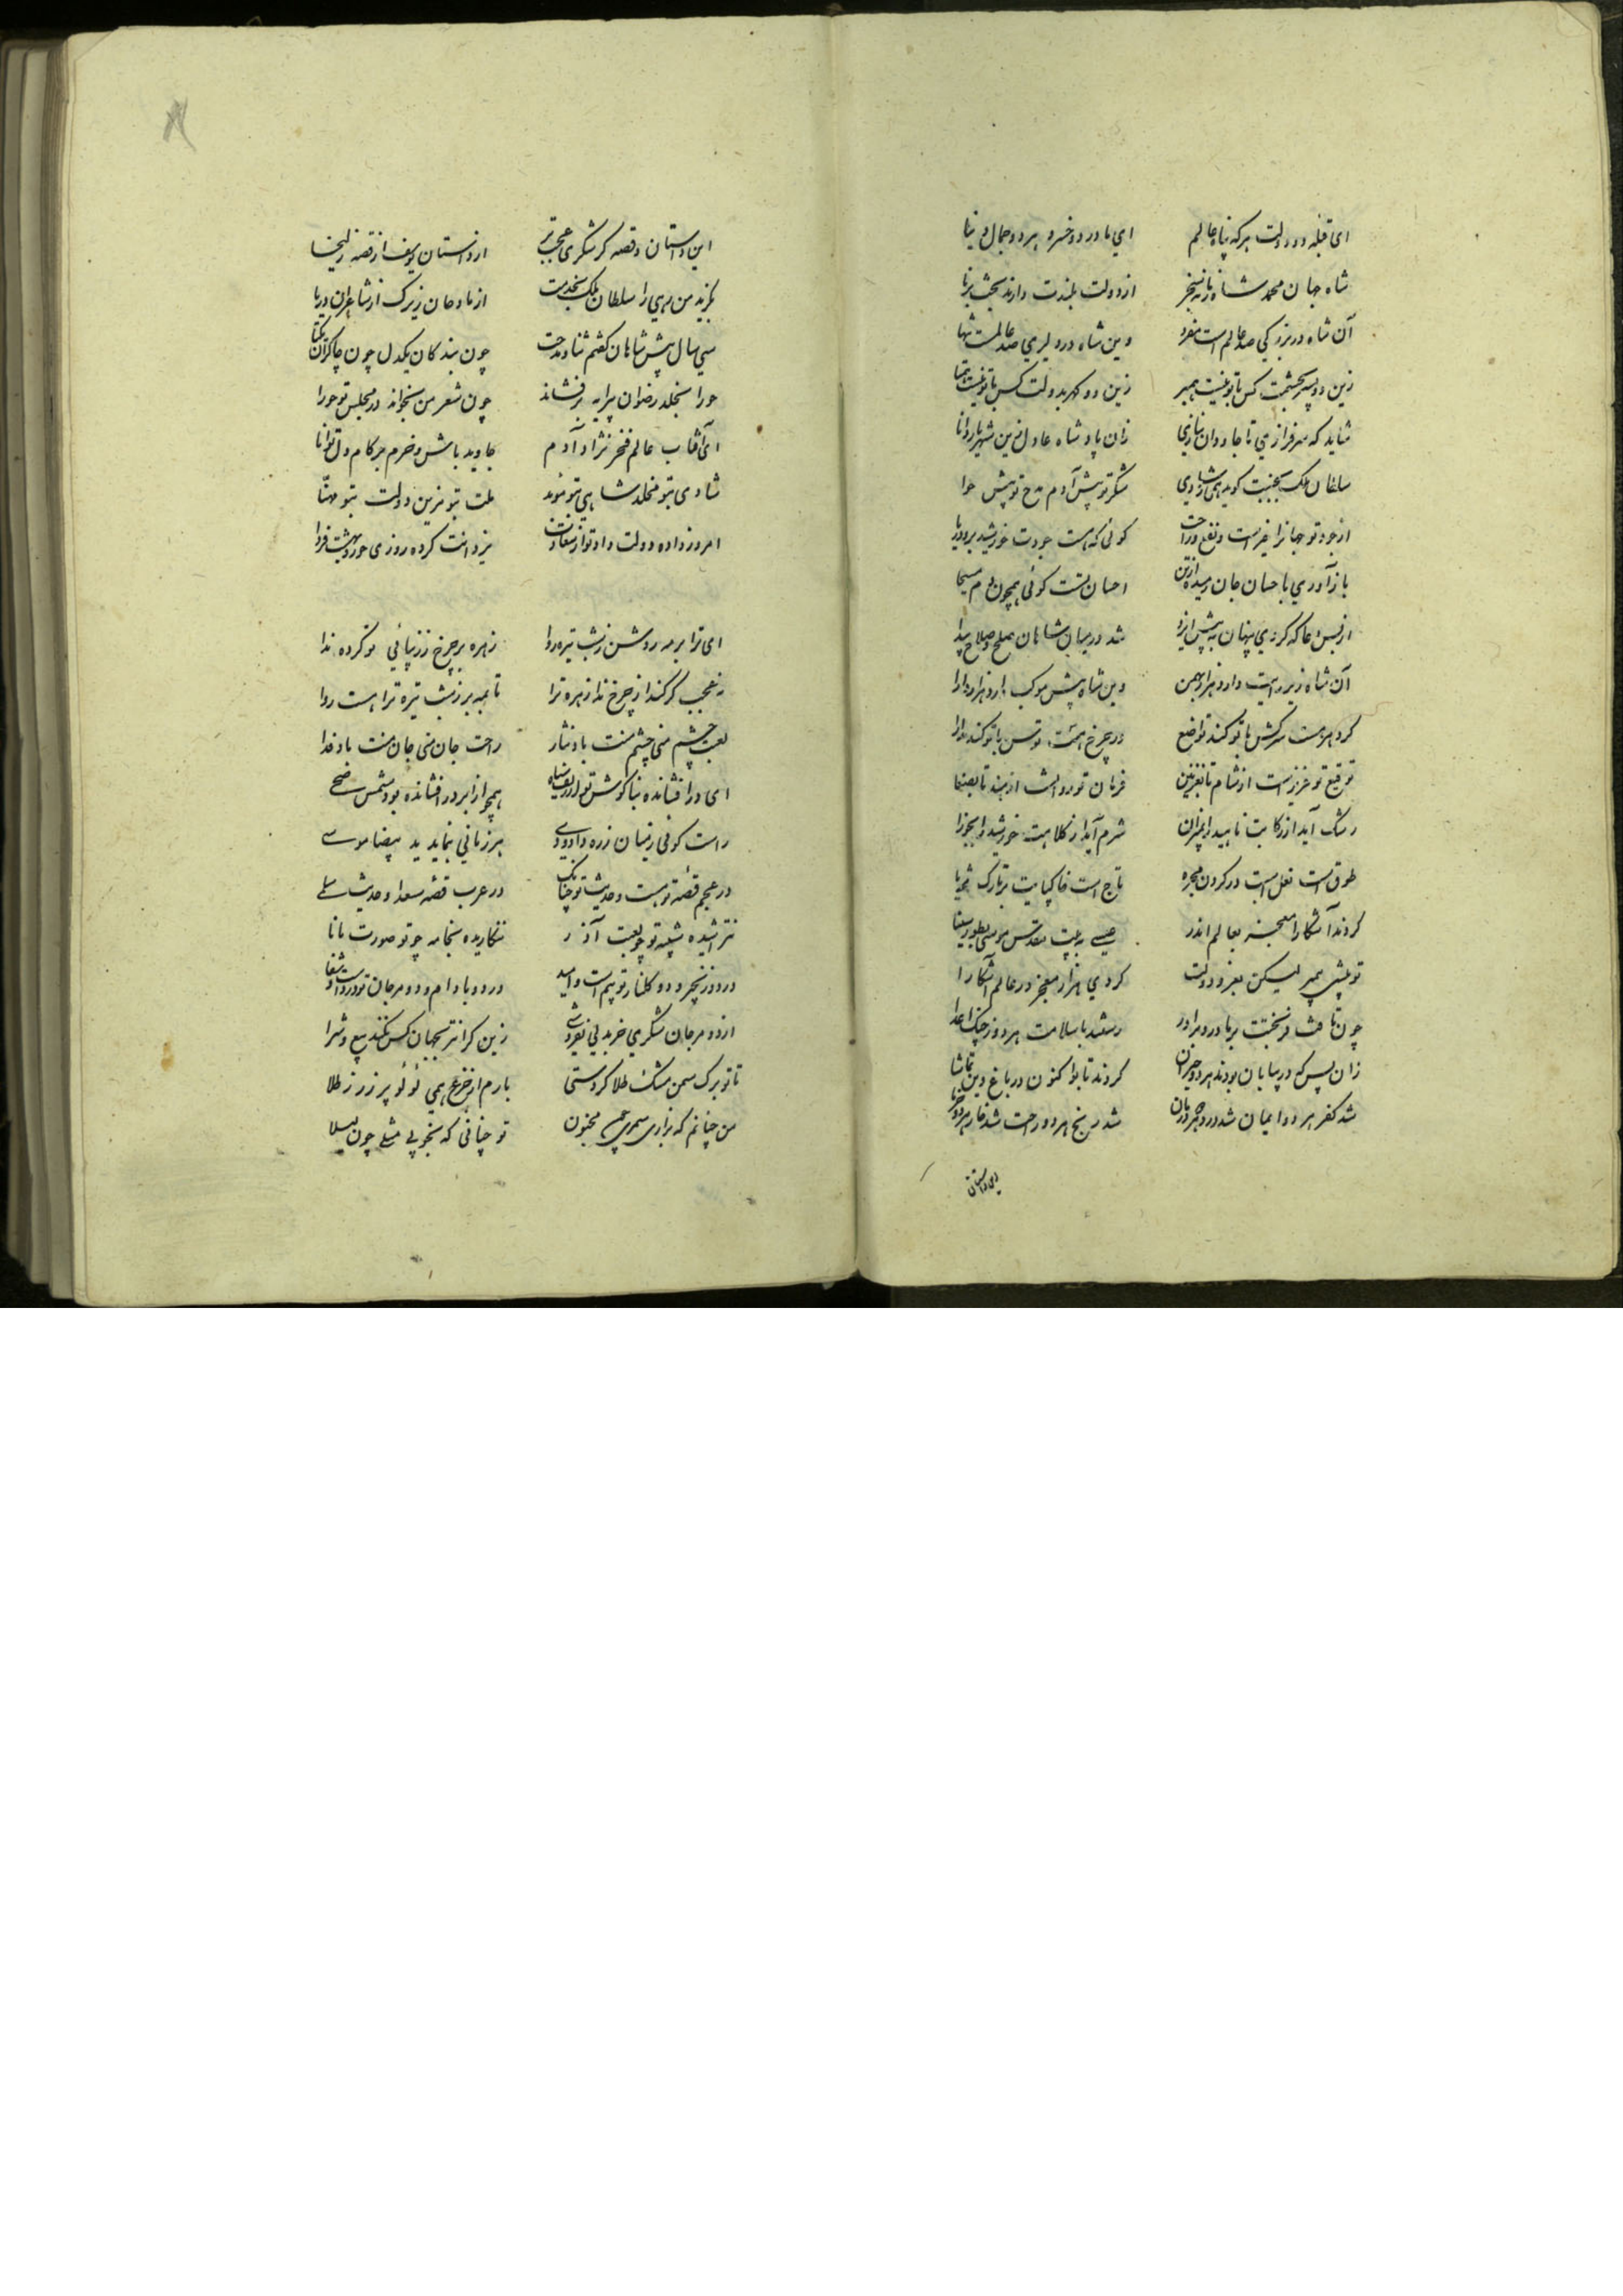 ای قبله دو دولت هر که پناه عالم ای مادر دو خسرو هر دو جمال دنیا
شاه جهان محمد شاه زمانه سنجر از دولت بلندت دارند بخت برنا
آن شاه در بزرگی صد عالم است مفرد وین شاه در دلیری صد عالمست تنها
زین دو پسر بحشمت کس با تو نیست همبر زین دو گهر بدولت کس با تو نیست همتا
شاید که سرفرازی تا جاودان بنازی زان پادشاه عادل زین شهریار دانا
سلطان ملک بجنت گوید همی ز شادی شکر تو پیش آدم مدح تو پیش حوا
از جود تو جهانرا خیر است و نفع و راحت گوئی که هست جودت خورشید بر و دریا
باز آوری باحسان جان رمیده از تن احسان تست گوئی همچون دم مسیحا
از بس دعا که کردی پنهان به پیش ایزد شد در میان شاهان صلح و صلاح پیدا
آن شاه زیر رایت دارد هزار بهمن وین شاه پیش موکب دارد هزار دارا
گردد مرت سرکش با تو کند تواضع ور چرخ هست توسن با تو کند مدارا
توقیع تو عزیز است از شام تا بغزنین فرمان تو روانست از هند تا بصنعا
رشک آید از رکابت ناهید را بمیزان شرم آید از کلاهت خورشید را بجوزا
طوق است نعل اسبت در گردن مجره تاج است خاک پایت بر تارک ثریا
کردند آشکارا معجز بعالم اندر عیسی به بیت مقدس موسی بطور سینا
تو نیستی پیمبر لیکن بعز و دولت کردی هزار معجز در عالم آشکارا
چون تافت فر بختت بر مادر و برادر رستند با سلامت هر دو ز چنگ اعدا
زان پس که در بیابان بودند هر دو حیران کردند تا بو اکنون در باغ دین تماشا
شد کفر هر دو ایمان شد درد هر دو درمان شد رنج هر دو راحت شد خار هر دو خرما
این داستان
این داستان و قصه گر بنگری عجب تر از داستان یوسف از قصه زلیخا
بگزید من رهی را سلطان ملک بخدمت از مادحان زیرک از شاعران دریا
سی سال پیش شاهان گفتم ثنا و مدحت چون بندگان یکدل چون چاکران یکتا
حورا بخلد رضوان پیرایه بر فشاند چون شعر من بخواند در مجلس تو حورا
ای آفتاب عالم فخر نژاد آدم جاوید باش و خرم بر کام دل توانا
شادی بتو مخلد شاهی بتو موید ملت بتو مزین دولت بتو مهنا
امروز داده دولت داد تو از سعادت یزدانت کرده روزی حور و بهشت فردا
ای ترا بر مه روشن ز شب تیره ردا زهره بر چرخ ز زیبائی تو کرده ندا
نه عجب گر کند از چرخ ندا زهره ترا تا بمه بر ز شب تیره ترا هست ردا
لعبت چشم منی چشم منت باد نثار راحت جان منی جان منت باد فدا
ای در افشانده بناگوش تو از زلف سیاه همچو از ابر در افشانده بود شمس ضحی
راست گوئی ز میان زره داودی هر زمانی بنماید ید بیضا موسی
در عجم قصه تو هست و حدیث تو چنانک در عرب قصه سعدا و حدیث سلمی
نتراشیده شبیه تو چو لعبت آذر ننگاریده بخامه چو تو صورت مانا
در دو زنجیر و دو گلنار تو بیم است و امید در دو بادام و دو مرجان تو درد است و شفا
از دو مرجان شکری خر بدلی نفروشی زین گرانتر بجهان کس نکند بیع و شرا
تا تو برگ سمن از مشک طلا کردستی بارم از جزع همی لؤلؤ بر زر ز طلا
من چنانم که بزاری سمرم چون مجنون تو چنانی که بخوبی مثلی چون لیلا